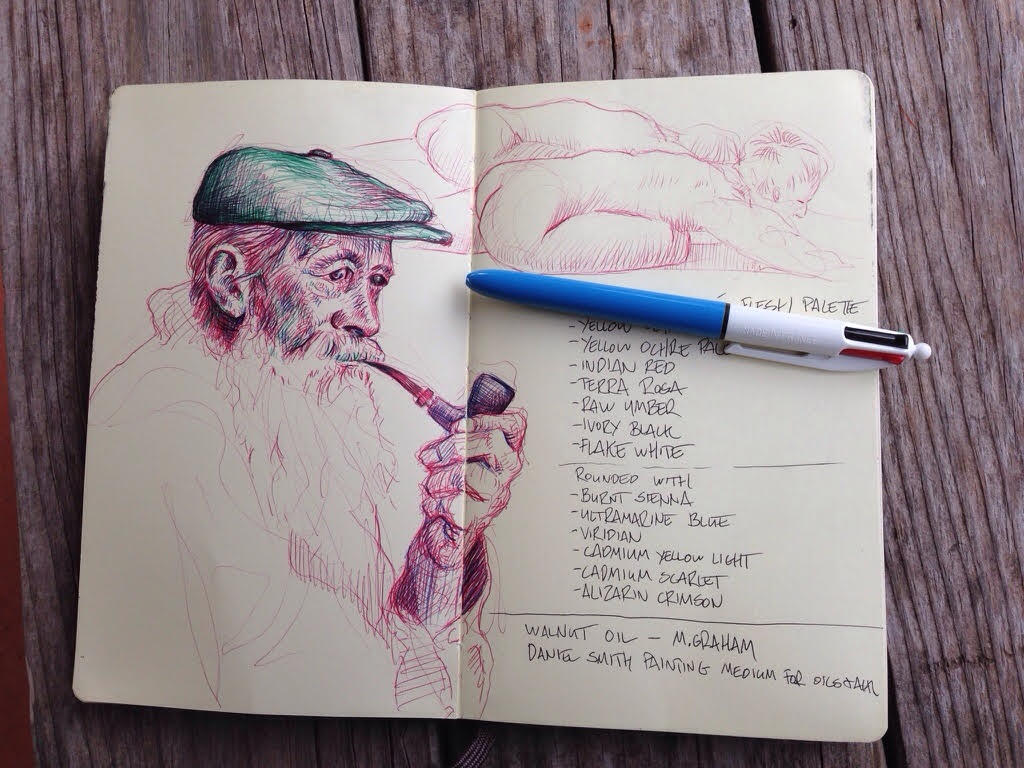 FLESH PALETTE
- YELLOW
- YELLOW OCHRE PALE
- INDIAN RED
- TERRA ROSA
- RAW UMBER
- IVORY BLACK
- FLAKE WHITE
ROUNDED WITH
- BURNT SIENNA
- ULTRAMARINE BLUE
- VIRIDIAN
- CADMIUM YELLOW LIGHT
- CADMIUM SCARLET
- ALIZARIN CRIMSON
WALNUT OIL - M. GRAHAM
DANIEL SMITH PAINTING MEDIUM FOR OILS &